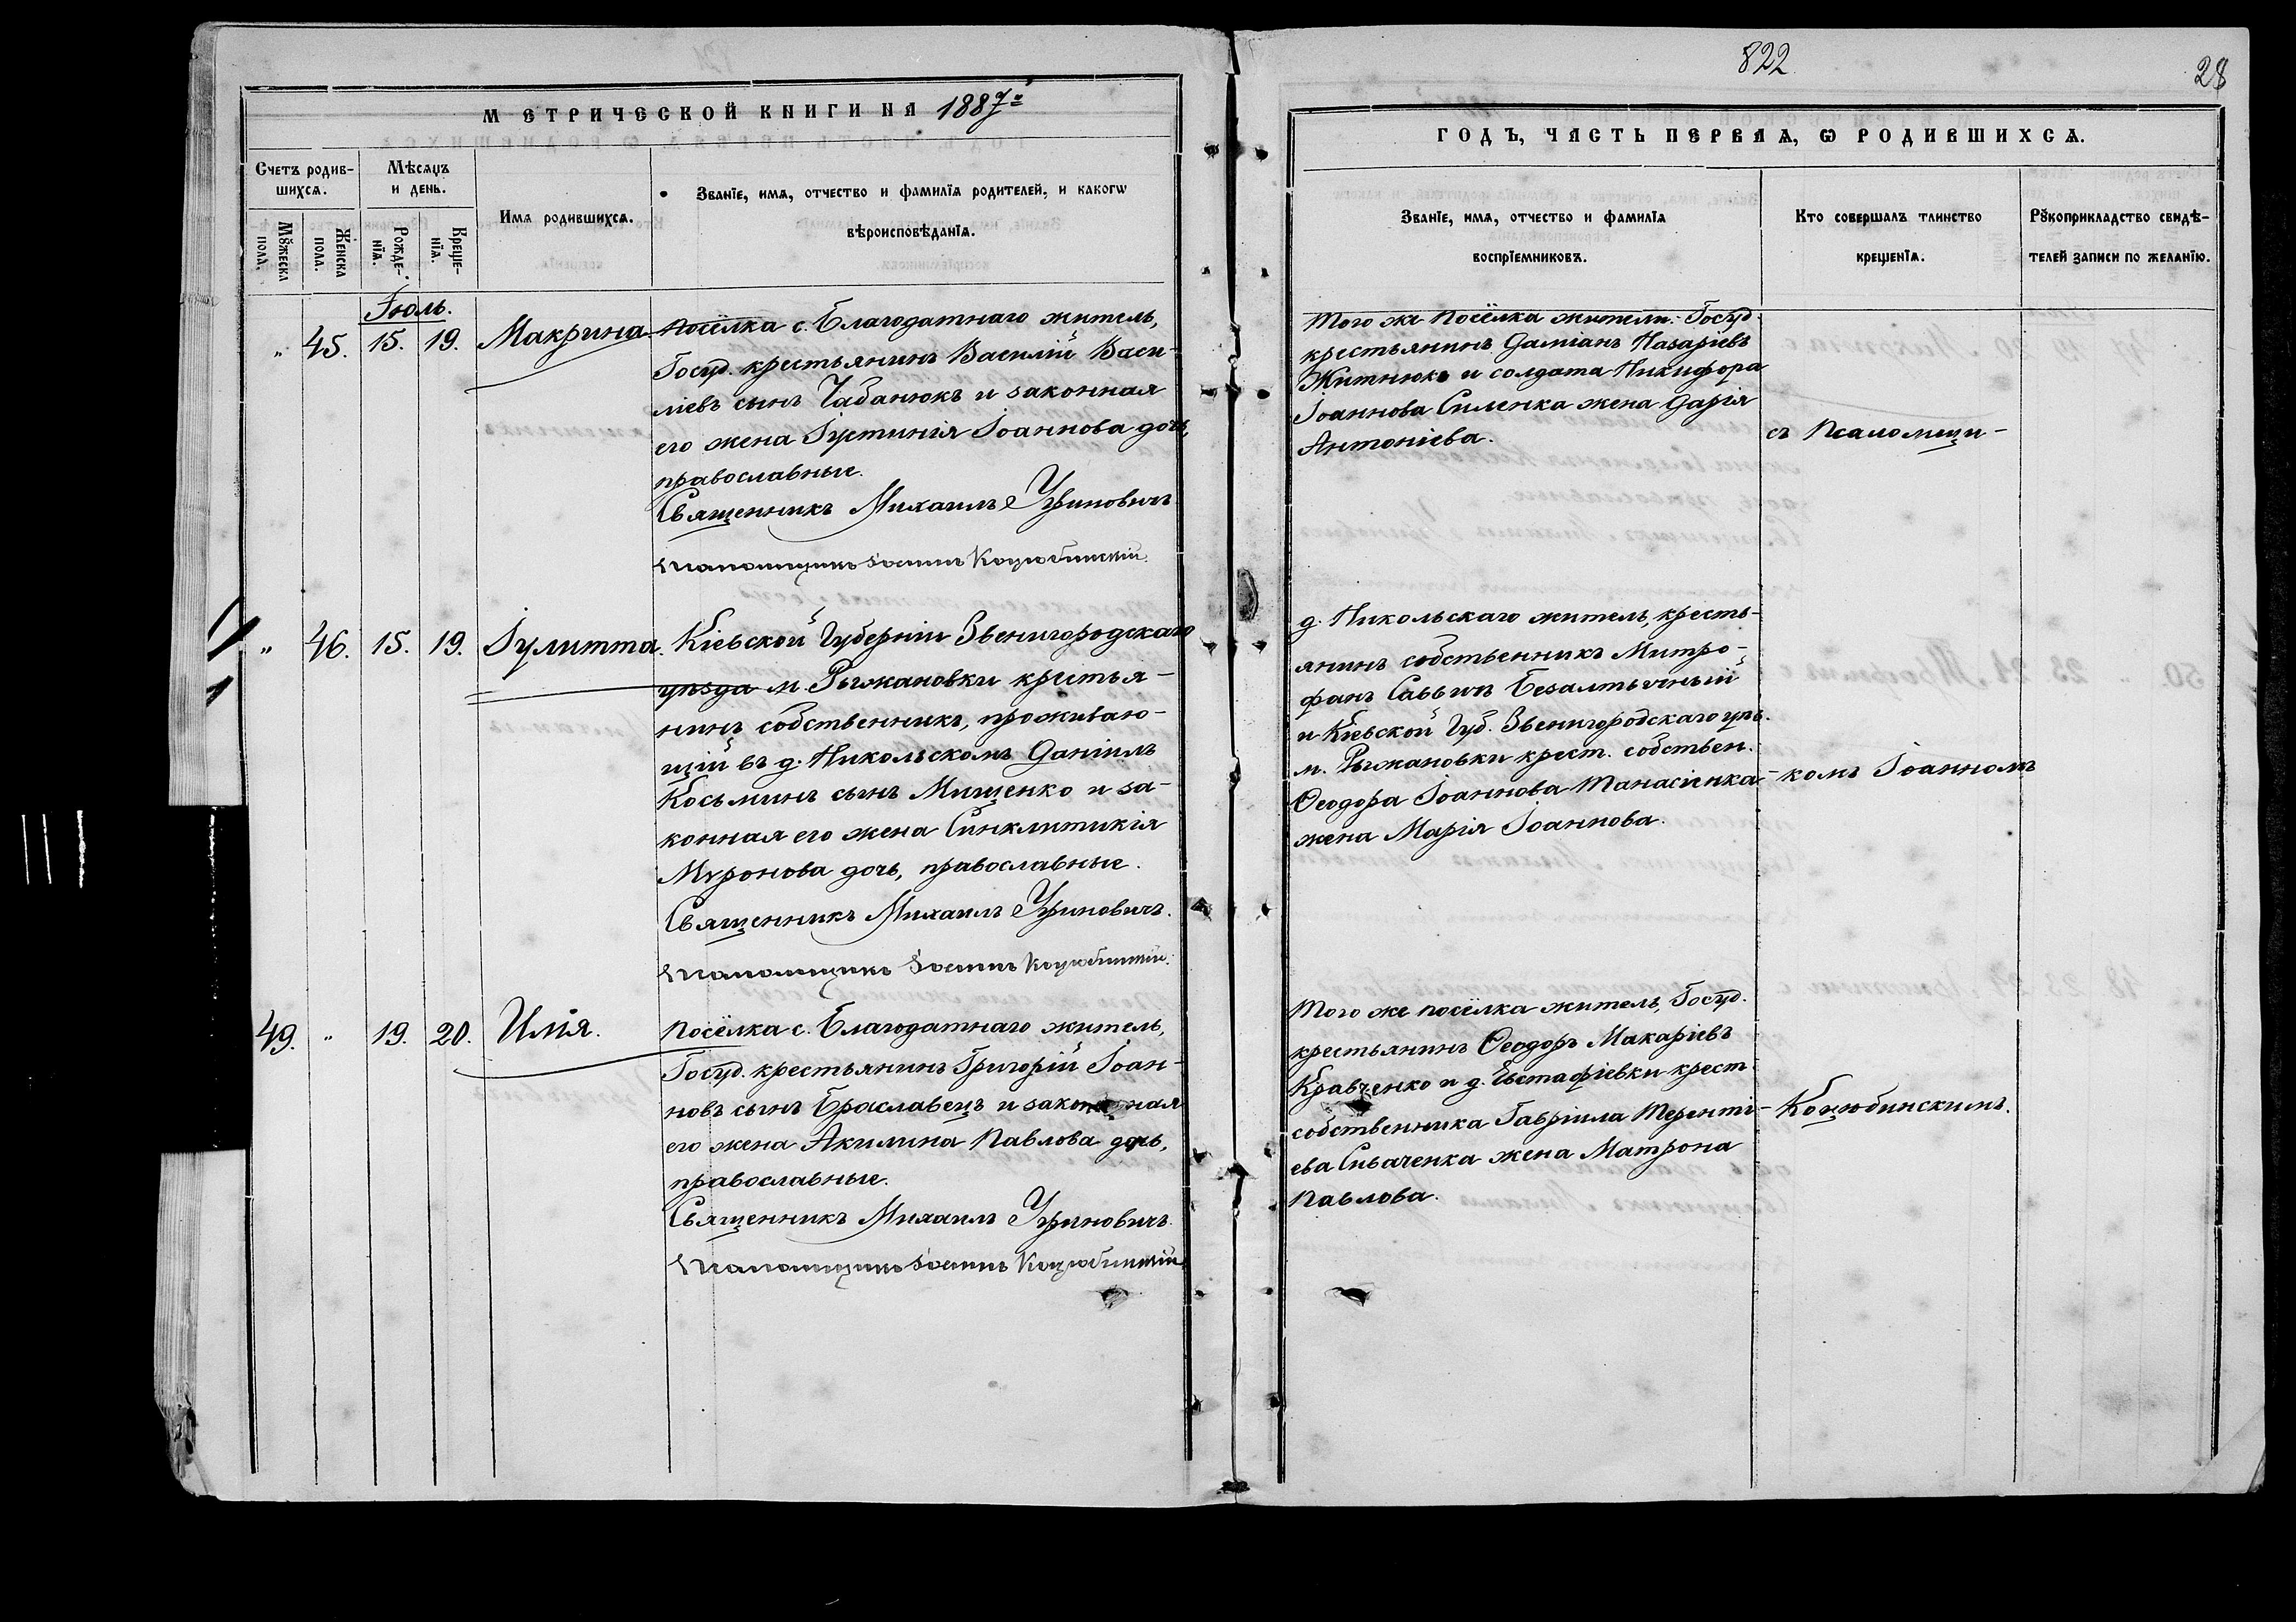 822
28
МЕТРИЧЕСКОЙ КНИГИ НА 1887й
ГОДЪ, ЧАСТЬ ПЕРВАЯ, Ѡ РОДИВШИХСѦ.
Счетъ родив-
шихсѧ.
Мꙋжеска
пола.
Женска
пола.
Мѣсѧцъ
и день.
Рожде-
нїѧ.
Креще-
нїѧ.
Имѧ родившихсѧ.
Званїе, имѧ, отчество и фамилїѧ родителей, и какогѡ
вѣроисповѣданїѧ.
Званїе, имѧ, отчество и фамилїѧ
воспрїемниковъ.
Кто совершалъ таинство
крещенїѧ.
Рꙋкоприкладство свидѣ-
телей записи по желанїю.
Іюль.
" 45. 15. 19. Макрина.
посёлка с. Благодатнаго житель,
Госуд. крестьянинъ Василій Васи-
ліевъ сынъ Чабанюкъ и законная
его жена Іустинія Іоаннова дочь,
православные.
Священникъ Михаилъ Уриновичъ
Псаломщикъ Іоаннъ Коцюбинскій.
Того же посёлка жители: Госуд.
крестьянинъ Даміанъ Назаріевъ
Житнюкъ и солдата Никифора
Іоаннова Силенка жена Дарія
Антоніева.
съ Псаломщи-
" 46. 15. 19. Іулитта.
Кіевской Губерніи Звенигородскаго
уѣзда м. Рыжановки крестья-
нинъ собственникъ, проживаю-
щій въ д. Никольскомъ Даніилъ
Косьминъ сынъ Мищенко и за-
конная его жена Синклитикія
Мѵронова дочь, православные.
Священникъ Михаилъ Уриновичъ.
Псаломщикъ Іоаннъ Коцюбинскій.
д. Никольскаго житель, кресть-
янинъ собственникъ Митро-
фанъ Саввинъ Безалтычный
и Кіевской Губ. Звенигородскаго уѣз.
м. Рыжановки крест. собствен.
Ѳеодора Іоаннова Танасіенка
жена Марія Іоаннова.
комъ Іоанномъ
49. " 19. 20. Илія.
посёлка с. Благодатнаго житель,
Госуд. крестьянинъ Григорій Іоан-
новъ сынъ Браславецъ и законная
его жена Акилина Павлова дочь,
православные.
Священникъ Михаилъ Уриновичъ.
Псаломщикъ Іоаннъ Коцюбинскій
Того же посёлка житель, Госуд.
крестьянинъ Ѳеодоръ Макаріевъ
Кравченко и д. Евстафіевки крест.
собственника Гавріила Теренті-
ева Сиваченка жена Матрона
Павлова.
Коцюбинскимъ.